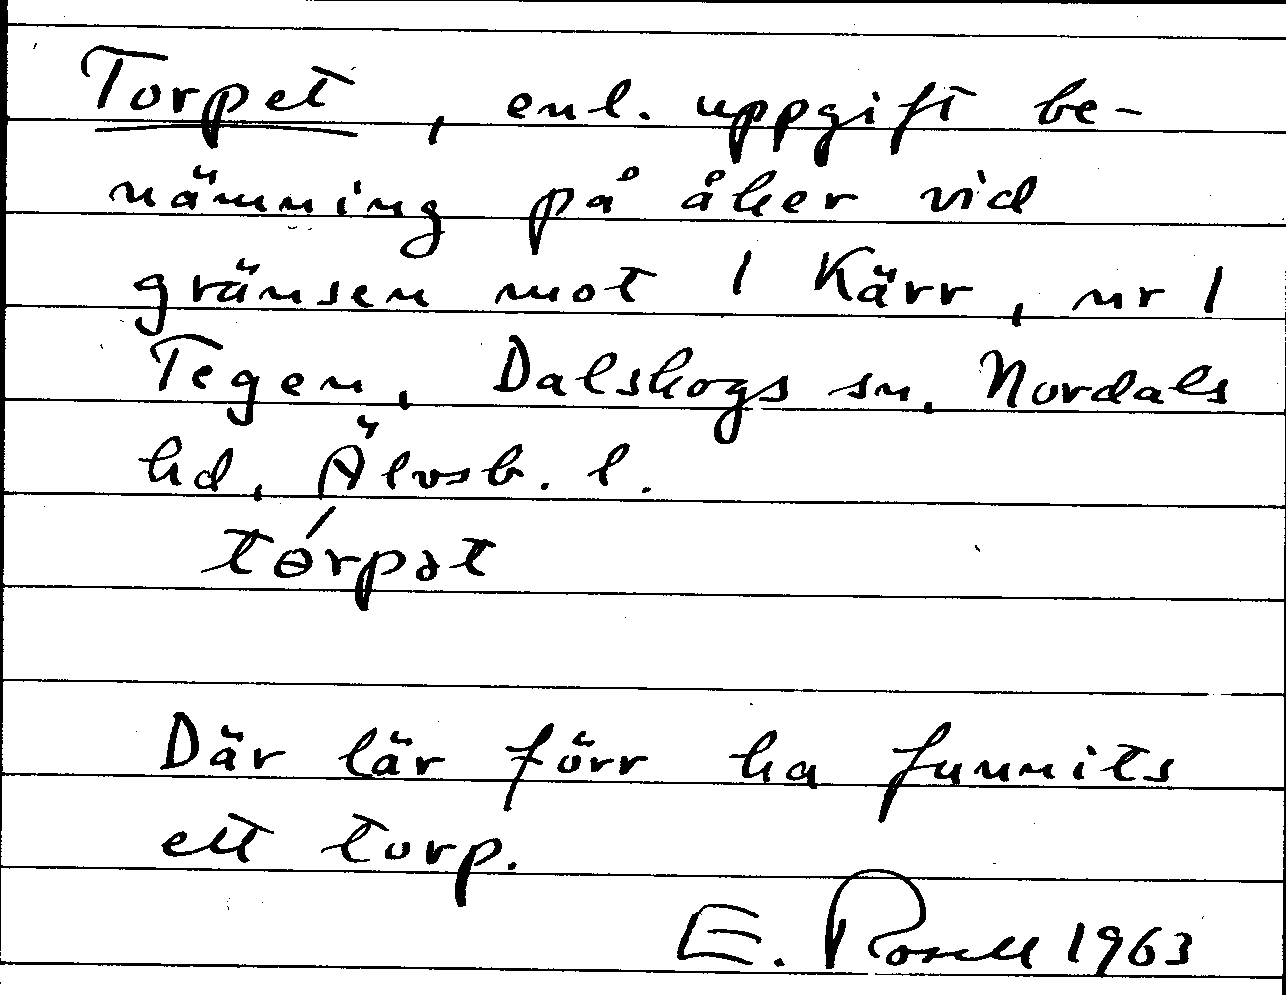 Torpet, enl. uppgift be-
nämning på åker vid
gränsen mot 1 Kärr, nr 1
Tegen, Dalskogs sn, Nordals
hd, Älvsb. l.
tɵ́rpət
Där lär förr ha funnits
ett torp.
E. Rosell 1963